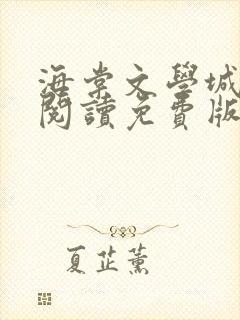 海棠文學城
閱讀免費版
夏芷薰